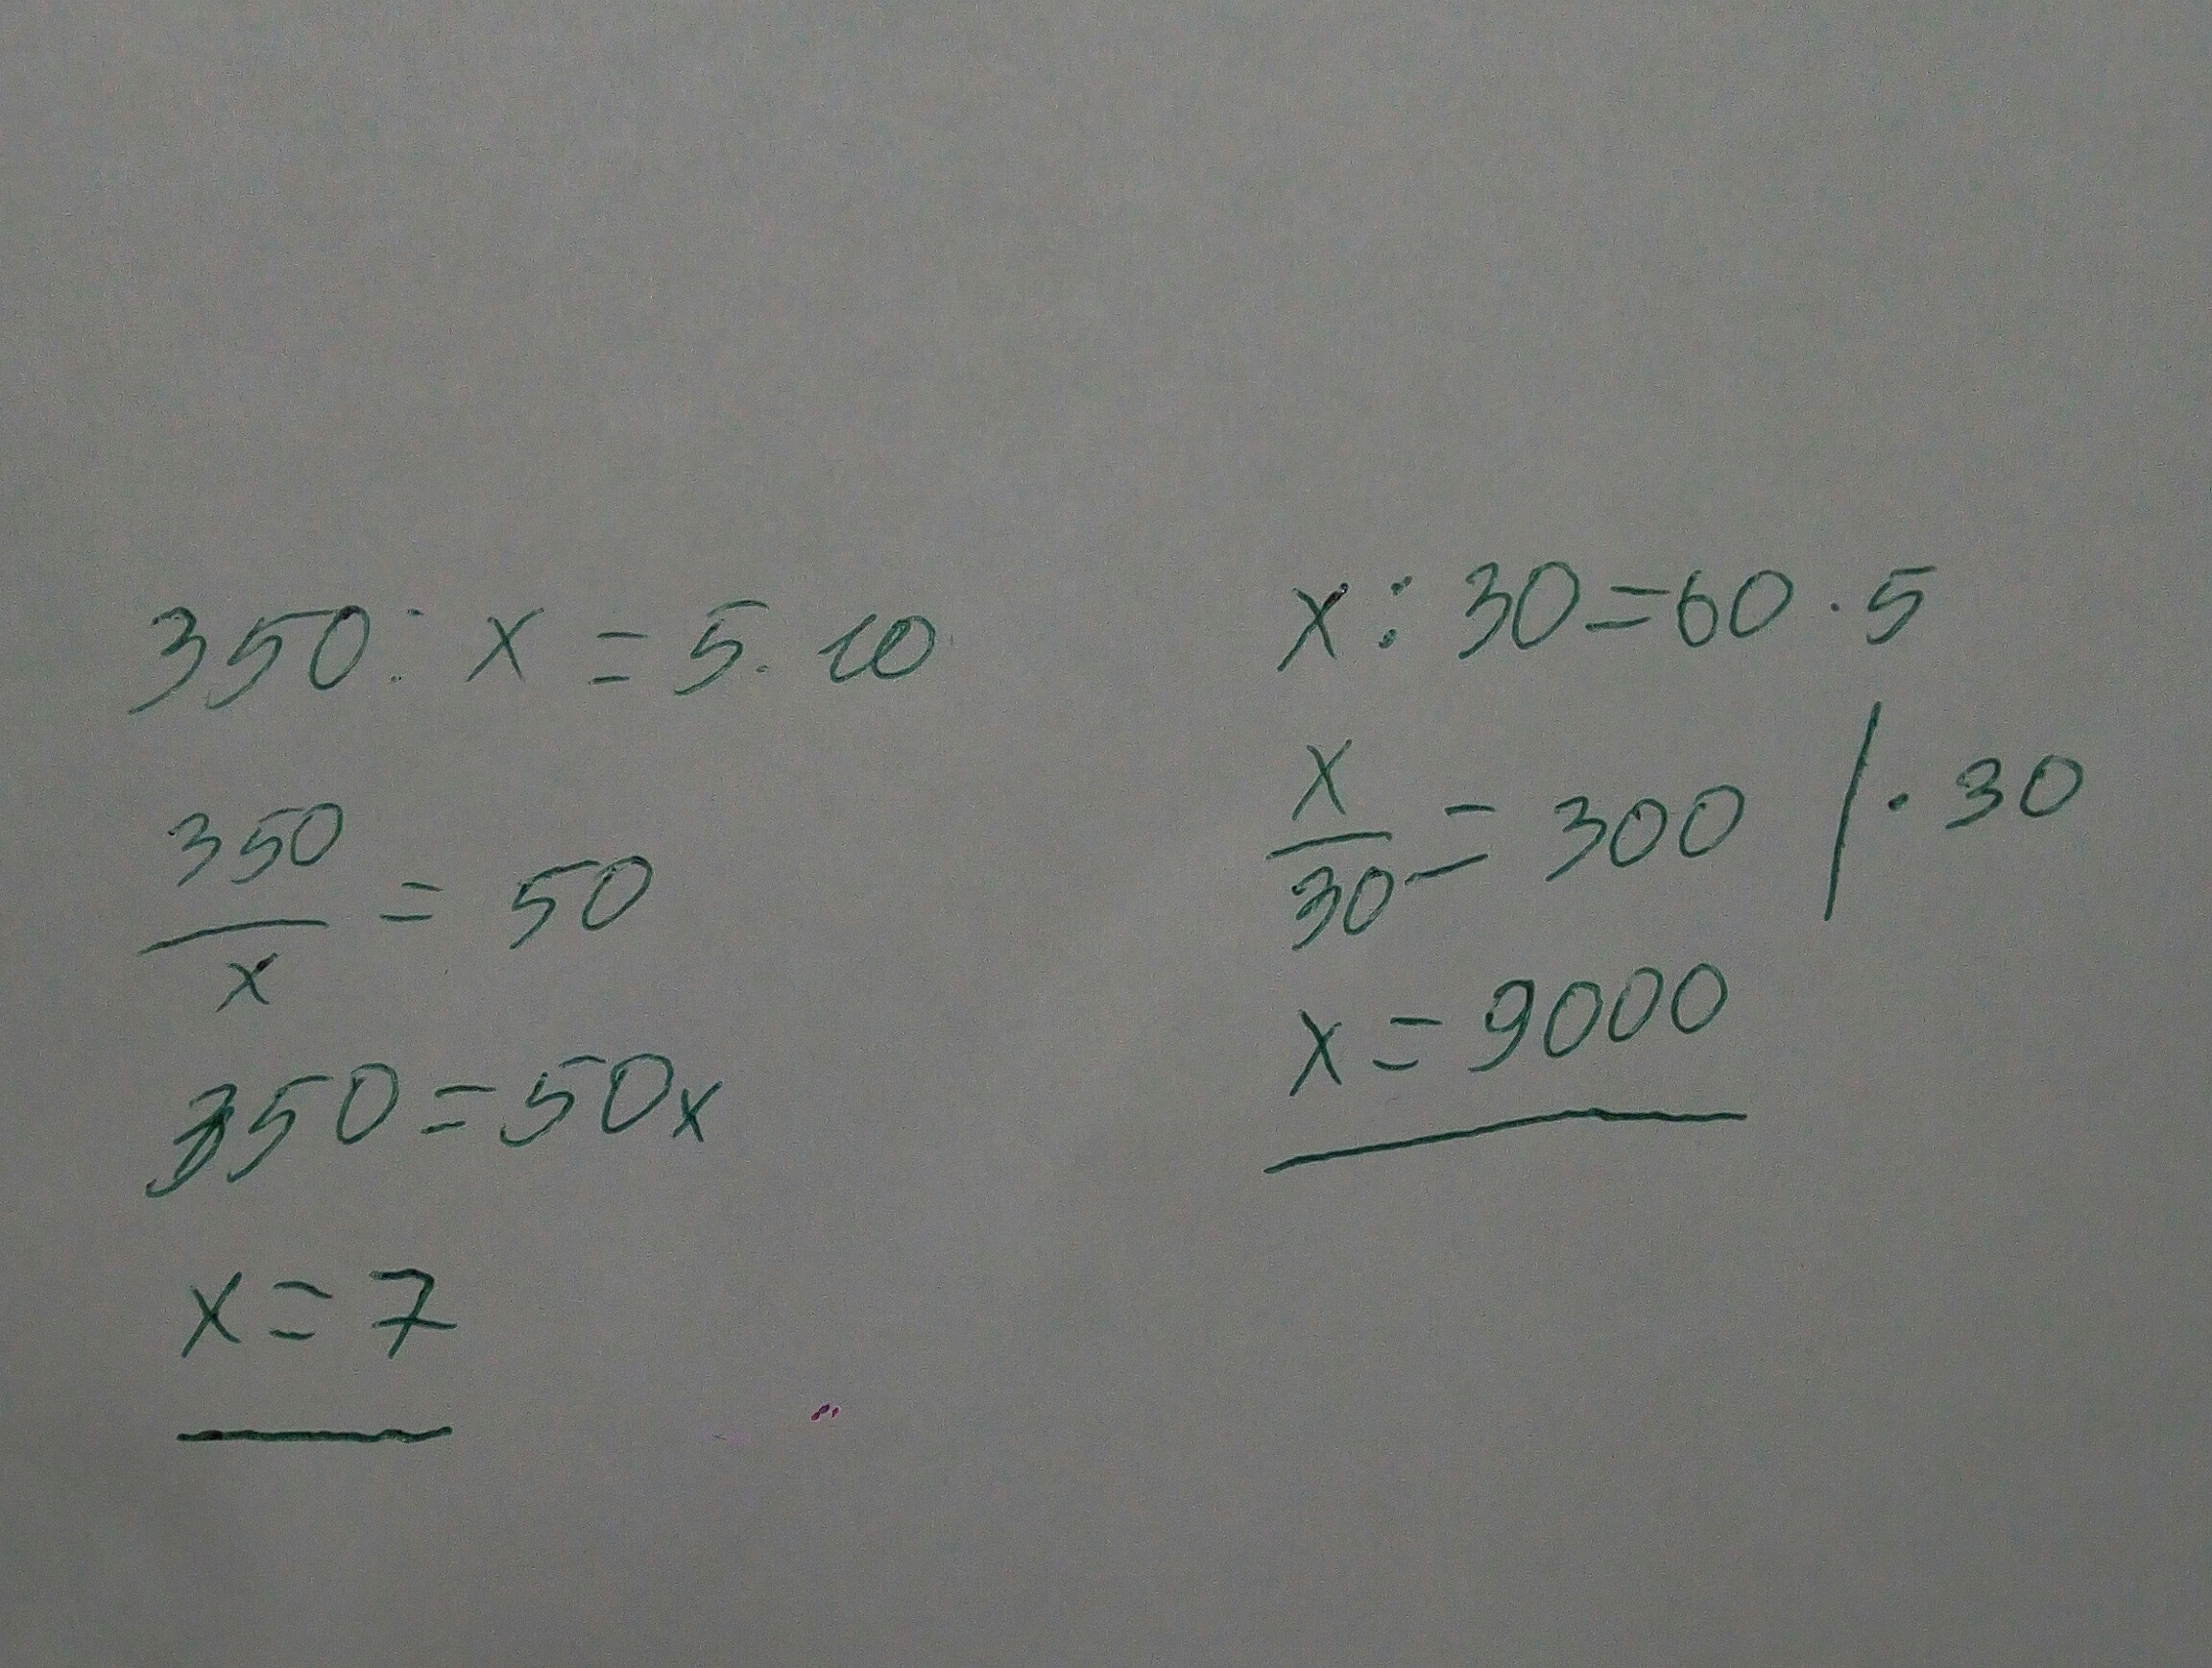 350 : x = 5 . 10
350/x = 50
350 = 50x
x = 7
x : 30 = 60 · 5
x/30 = 300 / · 30
x = 9000